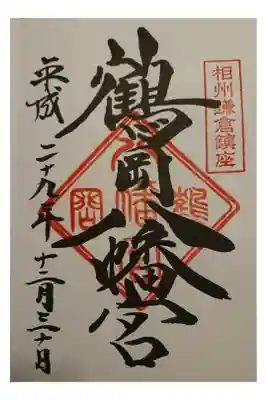 相州鎌倉鎮座
鶴岡八幡宮
平成二十九年十二月三十日